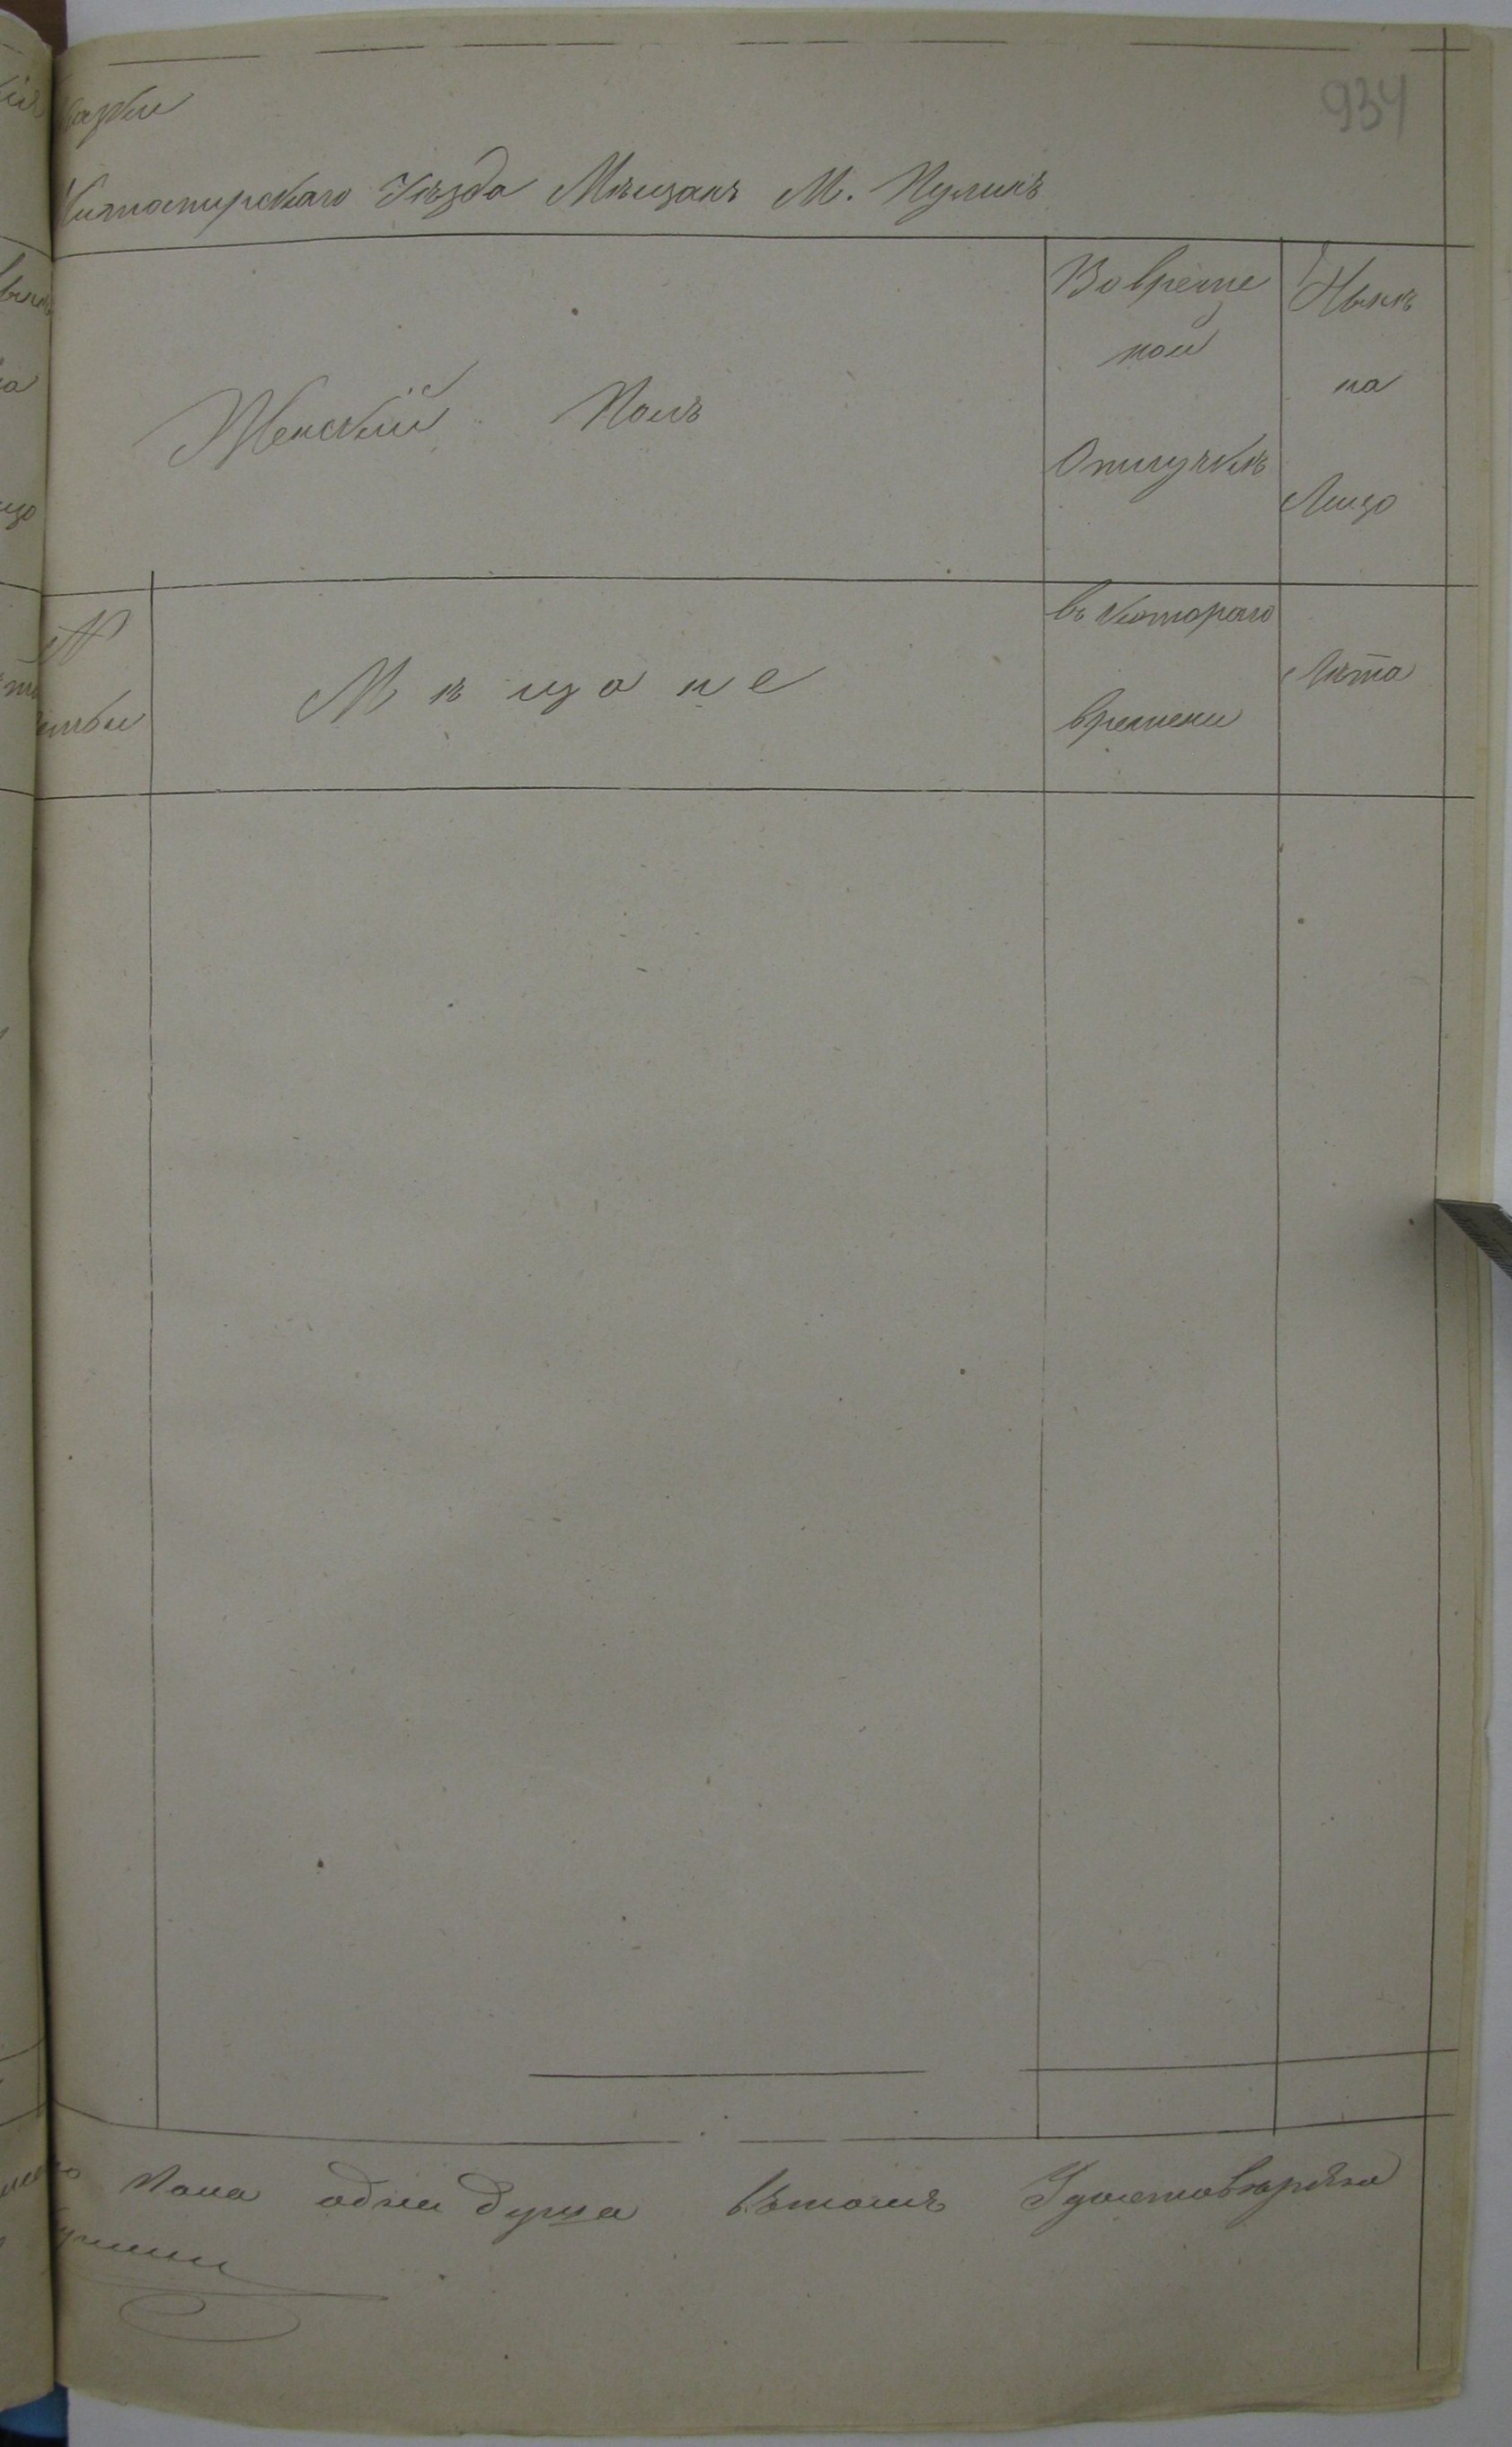 934
Житомирскаго Уѣзда Мѣщанъ М. Пулинъ
Женскій Полъ
Во време
ной
Отлучкѣ
Нынѣ
на
Лицо
№
Мѣщане
въ котораго
времени
Лѣта
Пола одна душа въ томъ Удостовѣряю